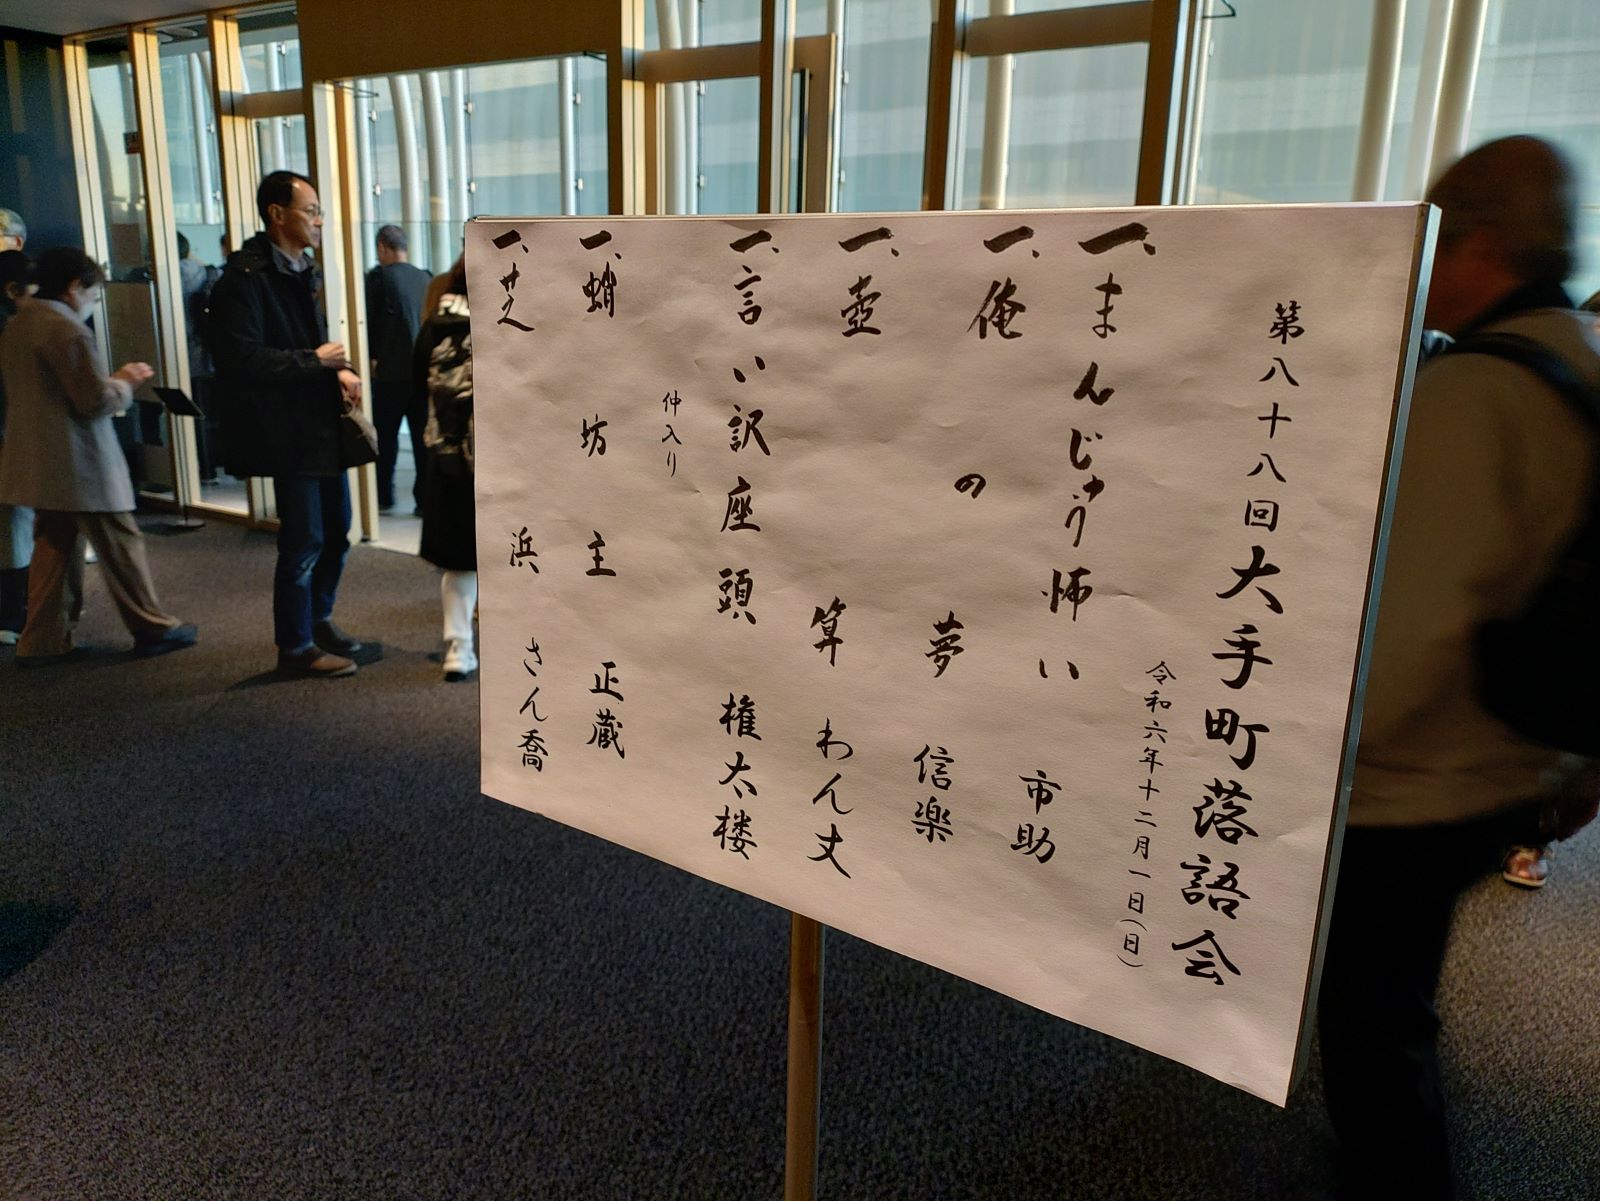 第八十八回大手町落語会
令和六年十二月一日(日)
一、まんじゅう怖い 市助
一、俺の夢 信楽
一、壺算 わん丈
一、言い訳座頭 権太楼
仲入り
一、蛸坊主 正蔵
一、芝浜 さん喬